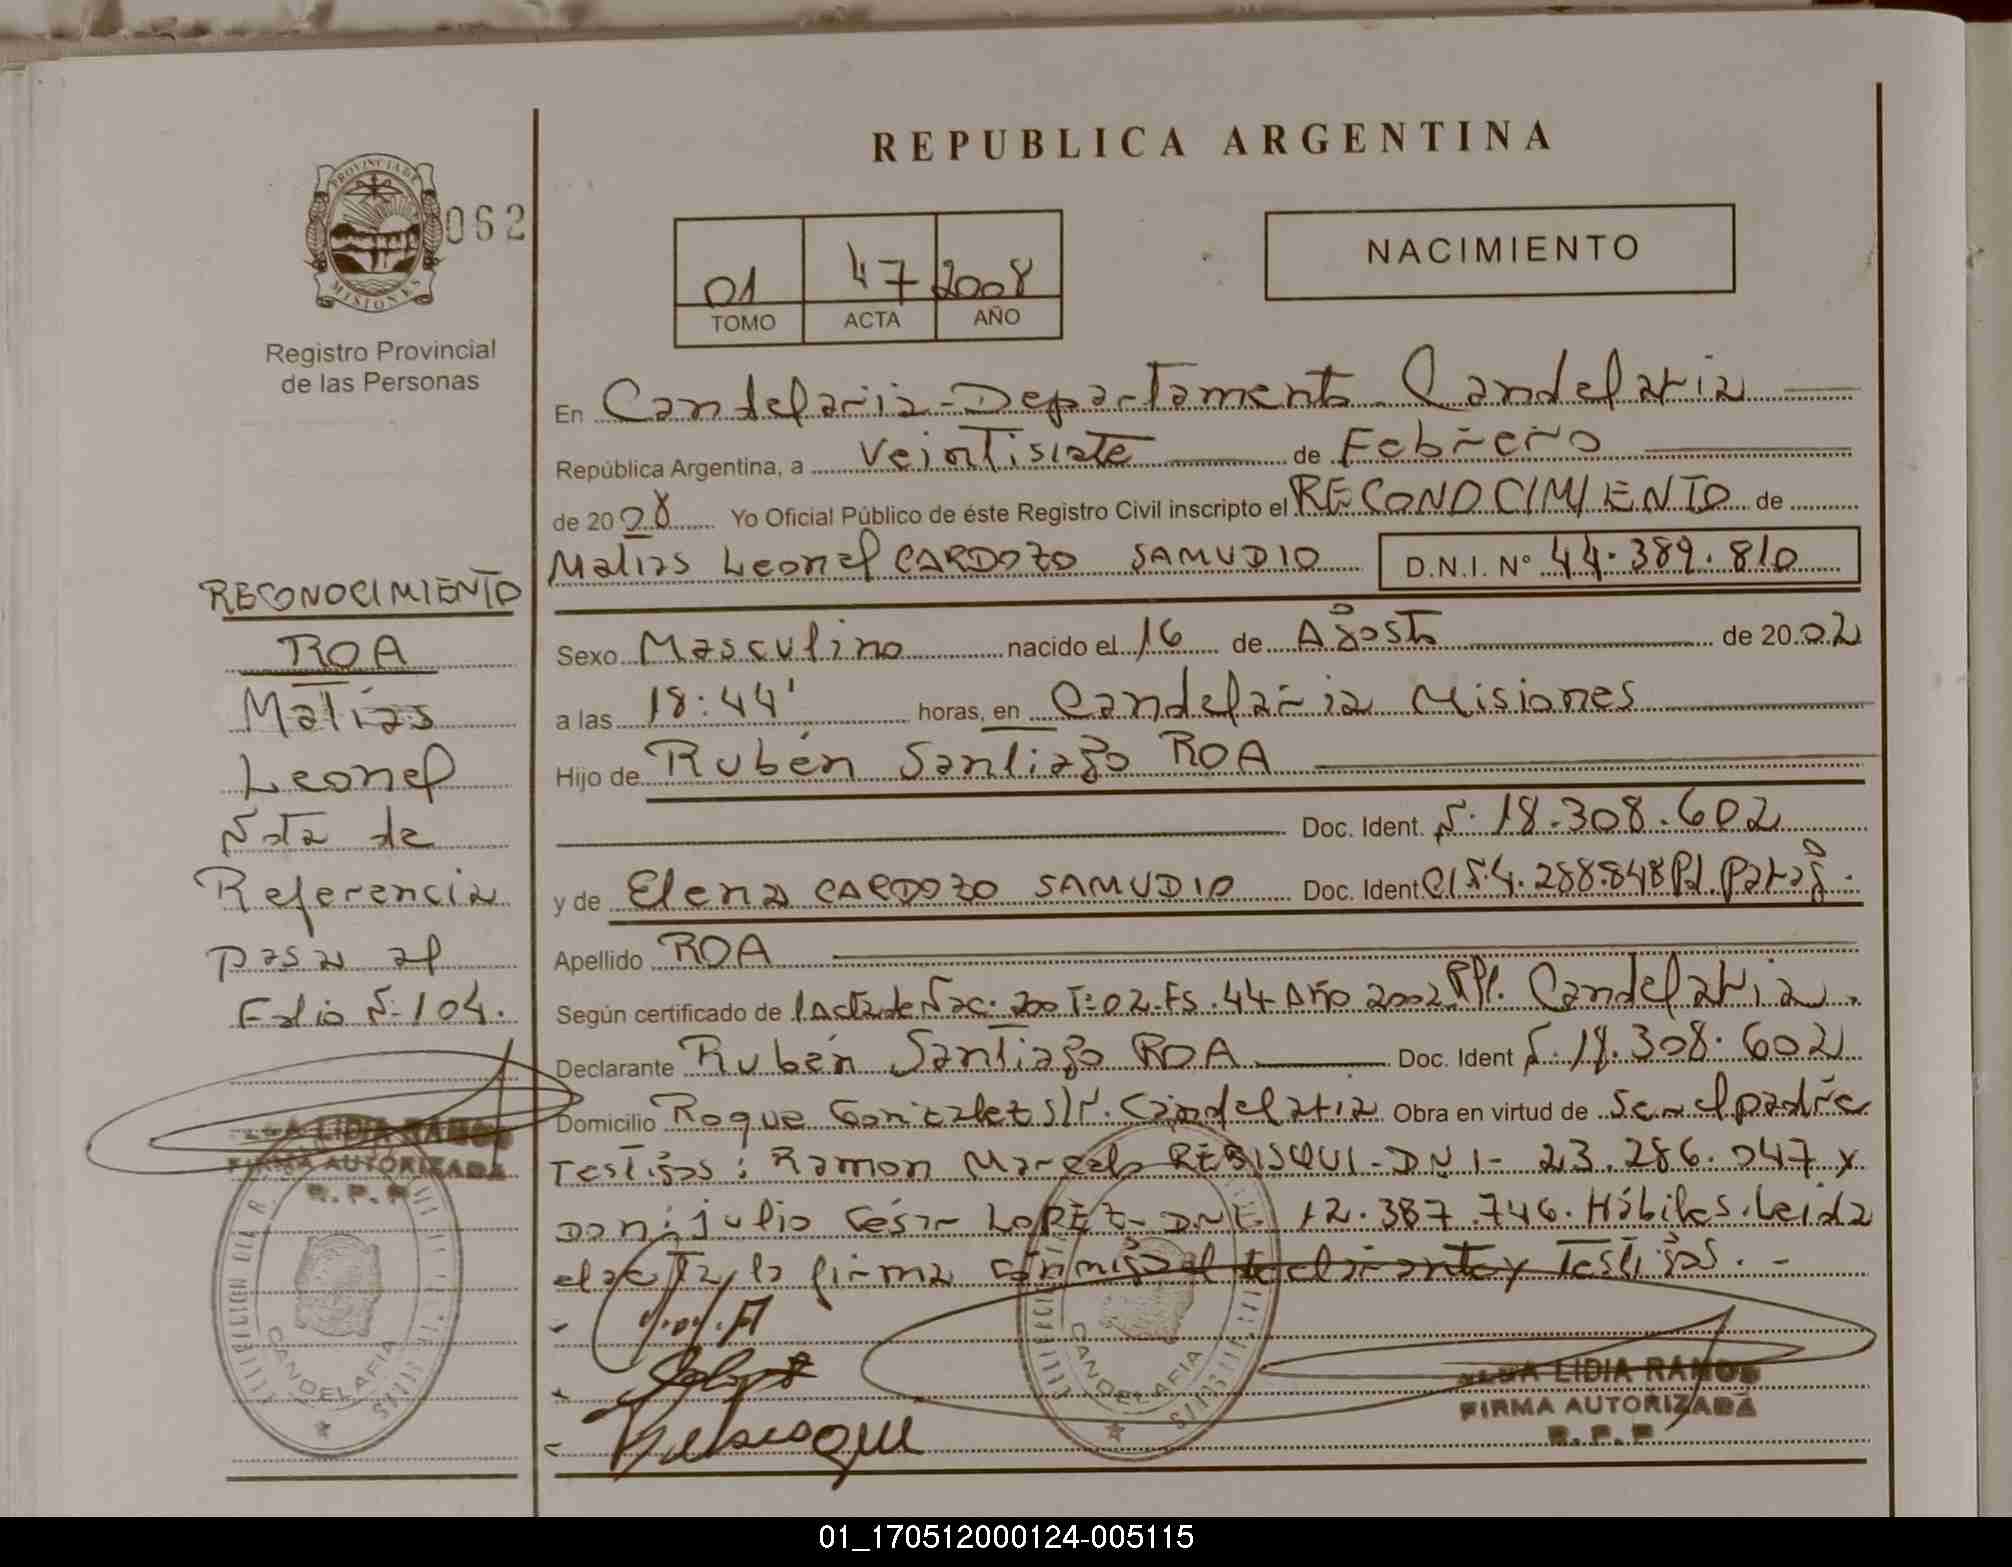 REPUBLICA ARGENTINA
PROVINCIA DE
MISIONES
062
01 47 2008
TOMO ACTA AÑO
NACIMIENTO
Registro Provincial
de las Personas
RECONOCIMIENTO
ROA
Matías
Leonel
Nota de
Referencia
pasa al
Folio Nº 104.
LIDIA RAMOS
FIRMA AUTORIZADA
R. P. P
CANDELARIA
En Candelaria - Departamento Candelaria
República Argentina, a Veintisiete de Febrero
de 2008 Yo Oficial Público de éste Registro Civil inscripto el RECONOCIMIENTO de
Matias Leonel CARDOZO SAMUDIO D.N.I. N° 44.389.810
Sexo Masculino nacido el 16 de Agosto de 20 02
a las 18:44' horas, en Candelaria Misiones
Hijo de Rubén Santiago ROA
Doc. Ident. Nº 18.308.602
y de Elena CARDOZO SAMUDIO Doc. Ident. CI Nº 4.288.848 Pl. Parag.
Apellido ROA
Según certificado de Acta de Nac. 200 Tº 02. Fs. 44 Año 2002 RPP. Candelaria.
Declarante Rubén Santiago ROA Doc. Ident Nº 18.308.602
Domicilio Roque Gonzalez S/Nº. Candelaria Obra en virtud de Ser el padre
Testigos: Ramon Marcelo REBISQUI - DNI - 23.286.047 y
Don: julio César LOPEZ - DNI. 12.387.746. Hábiles. Leida
el acta, la firma conmigo el declarante y Testigos. -
CANDELARIA
LIDIA RAMOS
FIRMA AUTORIZADA
R. P. P
01_170512000124-005115